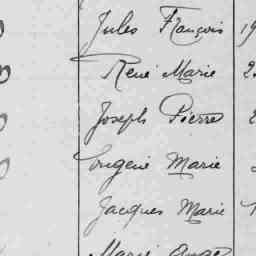 Jules François 19
René Marie 2
Joseph Pierre 2
Eugène Marie
Jacques Marie 1
Marie Ange